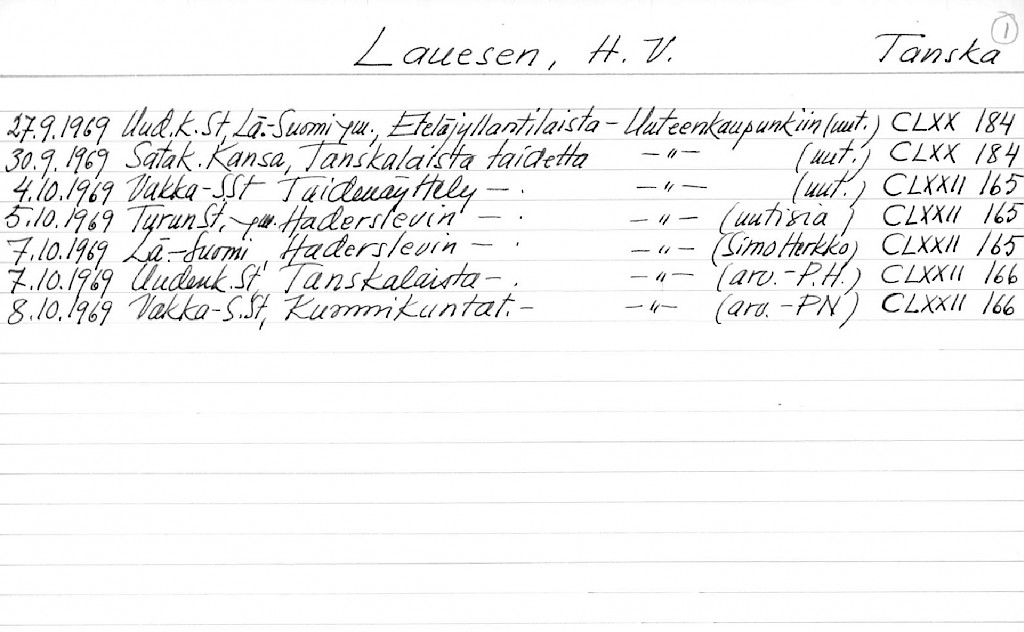 Lauesen, H. V. Tanska 1
27.9.1969 Uud.k.St, Lä.-Suomi ym., Eteläjyllantilaista - Uuteenkaupunkiin (uut.) CLXX 184
30.9.1969 Satak. Kansa, Tanskalaista taidetta -"- (uut.) CLXX 184
4.10.1969 Vakka-SSt Taidenäyttely - . -"- (uut.) CLXXII 165
5.10.1969 Turun St, ym. Haderslevin - . -"- (uutisia) CLXXII 165
7.10.1969 Lä.-Suomi, Haderslevin - . -"- (Simo Herkko) CLXXII 165
7.10.1969 Uudenk. St, Tanskalaista - . -"- (arv. - P.H.) CLXXII 166
8.10.1969 Vakka-S.St, Kummikuntat. - -"- (arv. - PN) CLXXII 166